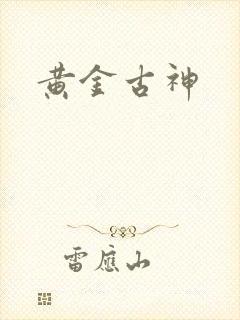 黄金古神
雷应山